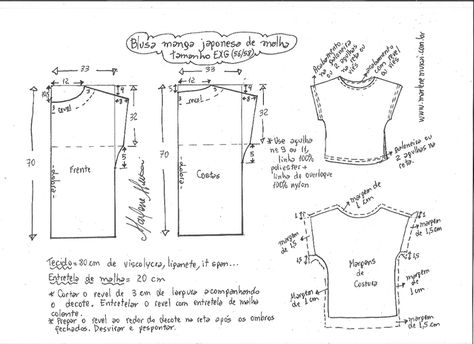 Blusa manga japonesa de malha
tamanho EXG (56/58)
33
12
3
4
8
revel
32
5
70
dobra
Frente
33
12
5
3
4
8
revel
32
5
70
dobra
Costas
Marlene Mukai
* Use agulha
nº 9 ou 11,
linha 100%
poliester +
linha de overloque
100% nylon
Acabamento
galoneira
ou 2 agulhas
na reta ou
viés
acabamento
com revel
ou viés
Galoneira ou
2 agulhas na
reta.
www.marlenemukai.com.br
margem de
1 cm
margem
de
1,5 cm
margem
de
1,5 cm
Margens
de
Costura
Margem
de 1 cm
margem
de 1 cm
margem de
1,5 cm
Tecido = 80 cm de viscolycra, liganete, it span...
Entretela de malha = 20 cm
* Cortar o revel de 3 cm de largura acompanhando
o decote. Entretelar o revel com entretela de malha
colante.
* Pregar o revel ao redor do decote na reta após os ombros
fechados. Desvirar e pespontar.